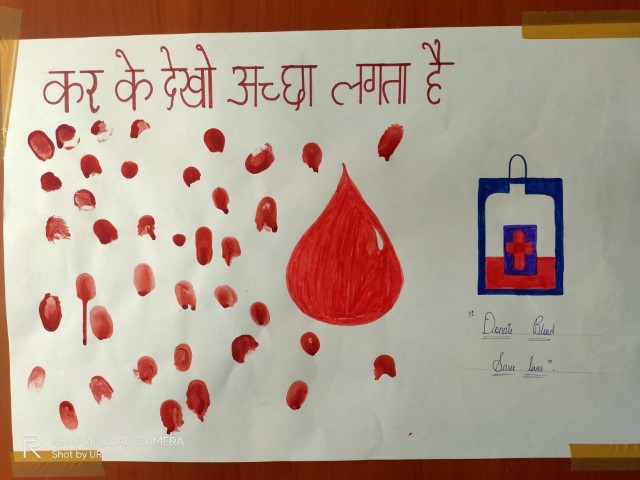 कर के देखो अच्छा लगता है
"Donate Blood
Save lives".
Shot by